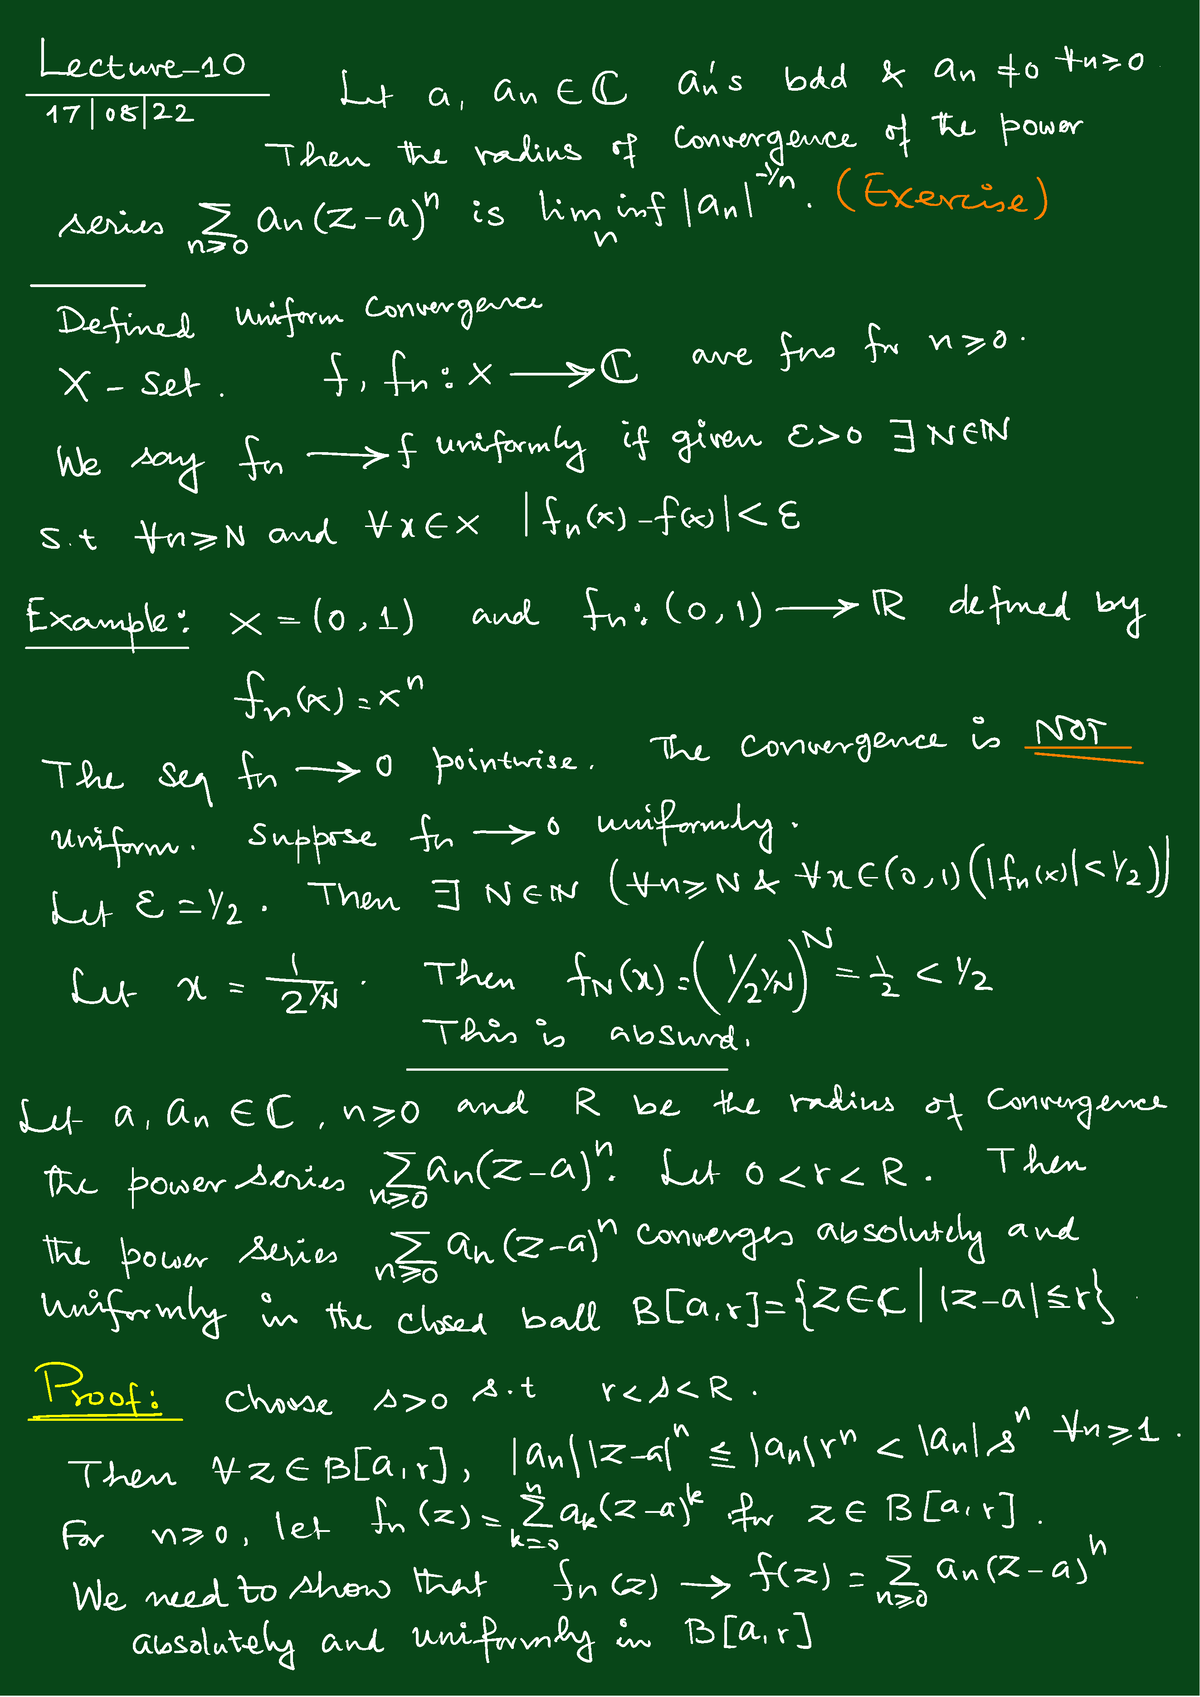 Lecture-10
17|08|22
Let a, an ∈ ℂ an's bdd & an ≠0 ∀n≥0.
Then the radius of convergence of the power
series ∑_{n≥0} an(z-a)^n is lim inf_n |an|^{-1/n}. (Exercise)
Defined uniform convergence
X - set. f, fn : X ⟶ ℂ are fns for n≥0.
We say fn ⟶ f uniformly if given ε>0 ∃ N∈ℕ
s.t ∀n≥N and ∀x∈X |fn(x)-f(x)|<ε
Example: X = (0,1) and fn: (0,1) ⟶ ℝ defined by
fn(x)=x^n
The seq fn ⟶ 0 pointwise. The convergence is NOT
uniform. Suppose fn ⟶ 0 uniformly.
Let ε=1/2. Then ∃ N∈ℕ (∀n≥N & ∀x∈(0,1)(|fn(x)|<1/2))
Let x = 1/2^{1/N}. Then fN(x)=(1/2^{1/N})^N = 1/2 < 1/2
This is absurd.
Let a, an ∈ ℂ, n≥0 and R be the radius of convergence
the power series ∑_{n≥0} an(z-a)^n. Let 0<r<R. Then
the power series ∑_{n≥0} an(z-a)^n converges absolutely and
uniformly in the closed ball B[a,r]={z∈ℂ | |z-a|≤r}.
Proof: Choose s>0 s.t r<s<R.
Then ∀z∈B[a,r], |an||z-a|^n ≤ |an|r^n < |an|s^n ∀n≥1.
For n≥0, let fn(z)=∑_{k=0}^{n} ak(z-a)^k for z∈B[a,r].
We need to show that fn(z) → f(z) = ∑_{n≥0} an(z-a)^n
absolutely and uniformly in B[a,r]